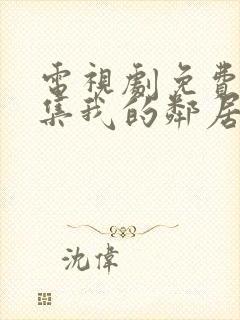 電視劇免費
集我的鄰居
沈偉